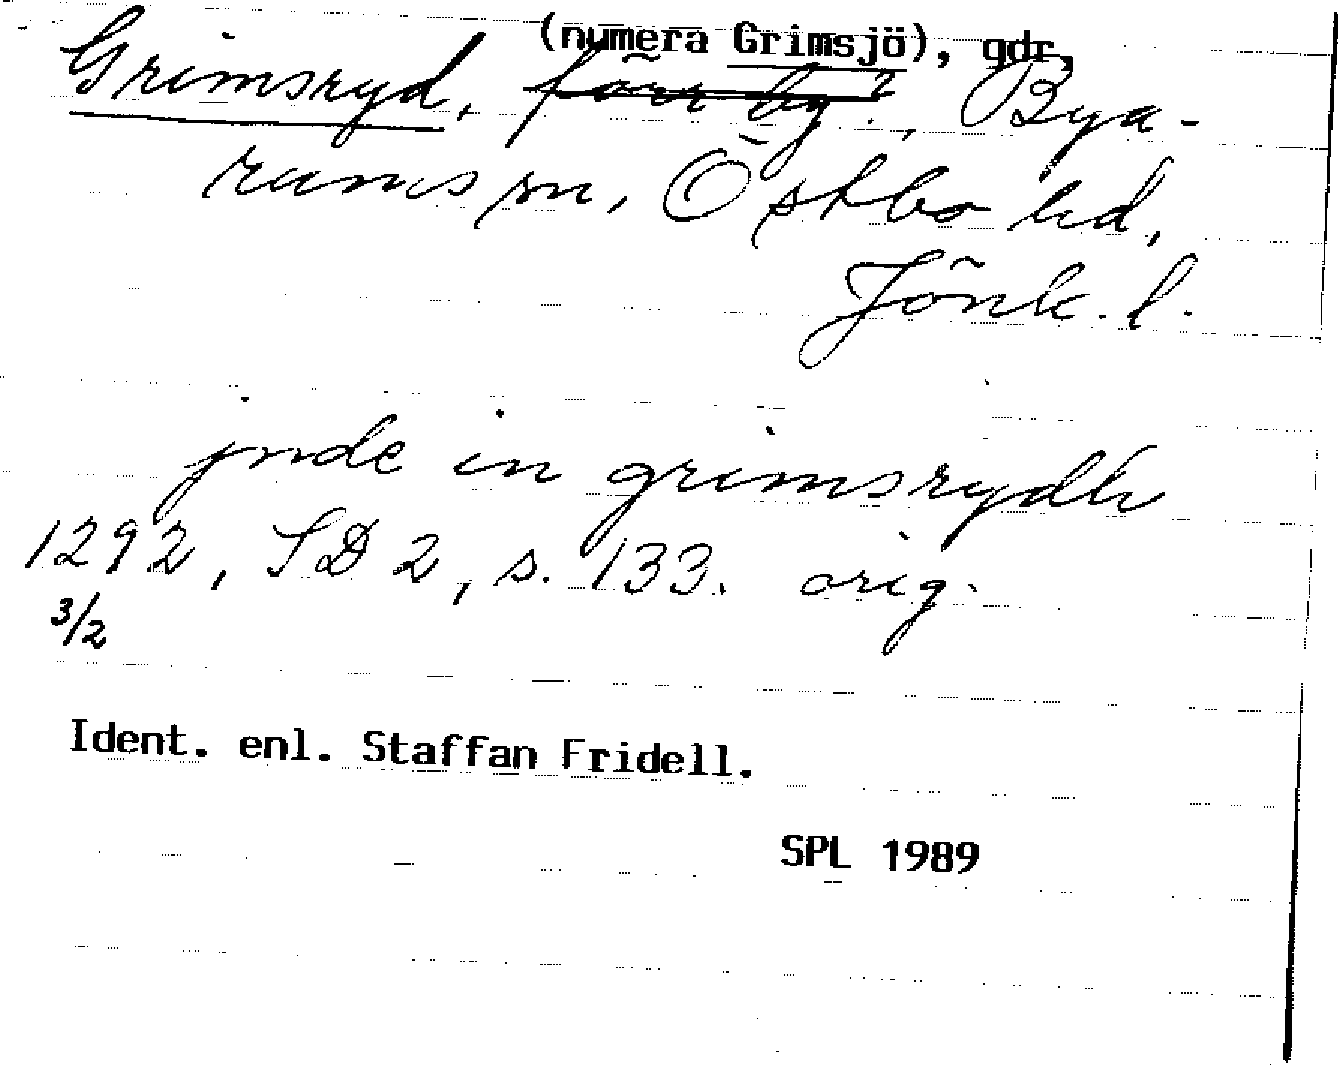 (numera Grimsjö), gdr,
Grimsryd, förr by?, Bya-
rums sn, Östbo hd,
Jönk. l.
jnde in grimsrydh
1292, SD 2, s. 133. orig.
3/2
Ident. enl. Staffan Fridell.
SPL 1989